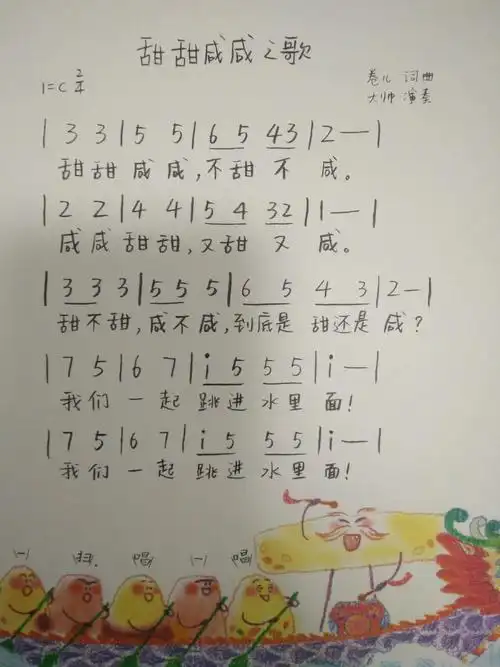 甜甜咸咸之歌
1=C 2/4
卷儿 词曲
大帅 演奏
| 3 3 | 5 5 | 6 5 43 | 2 — |
甜甜咸咸,不甜不咸。
| 2 2 | 4 4 | 5 4 32 | 1 — |
咸咸甜甜,又甜又咸。
| 3 3 3 | 5 5 5 | 6 5 4 3 | 2 — |
甜不甜,咸不咸,到底是甜还是咸?
| 7 5 | 6 7 | i 5 5 5 | i — |
我们一起跳进水里面!
| 7 5 | 6 7 | i 5 5 5 | i — |
我们一起跳进水里面!
唱 唱